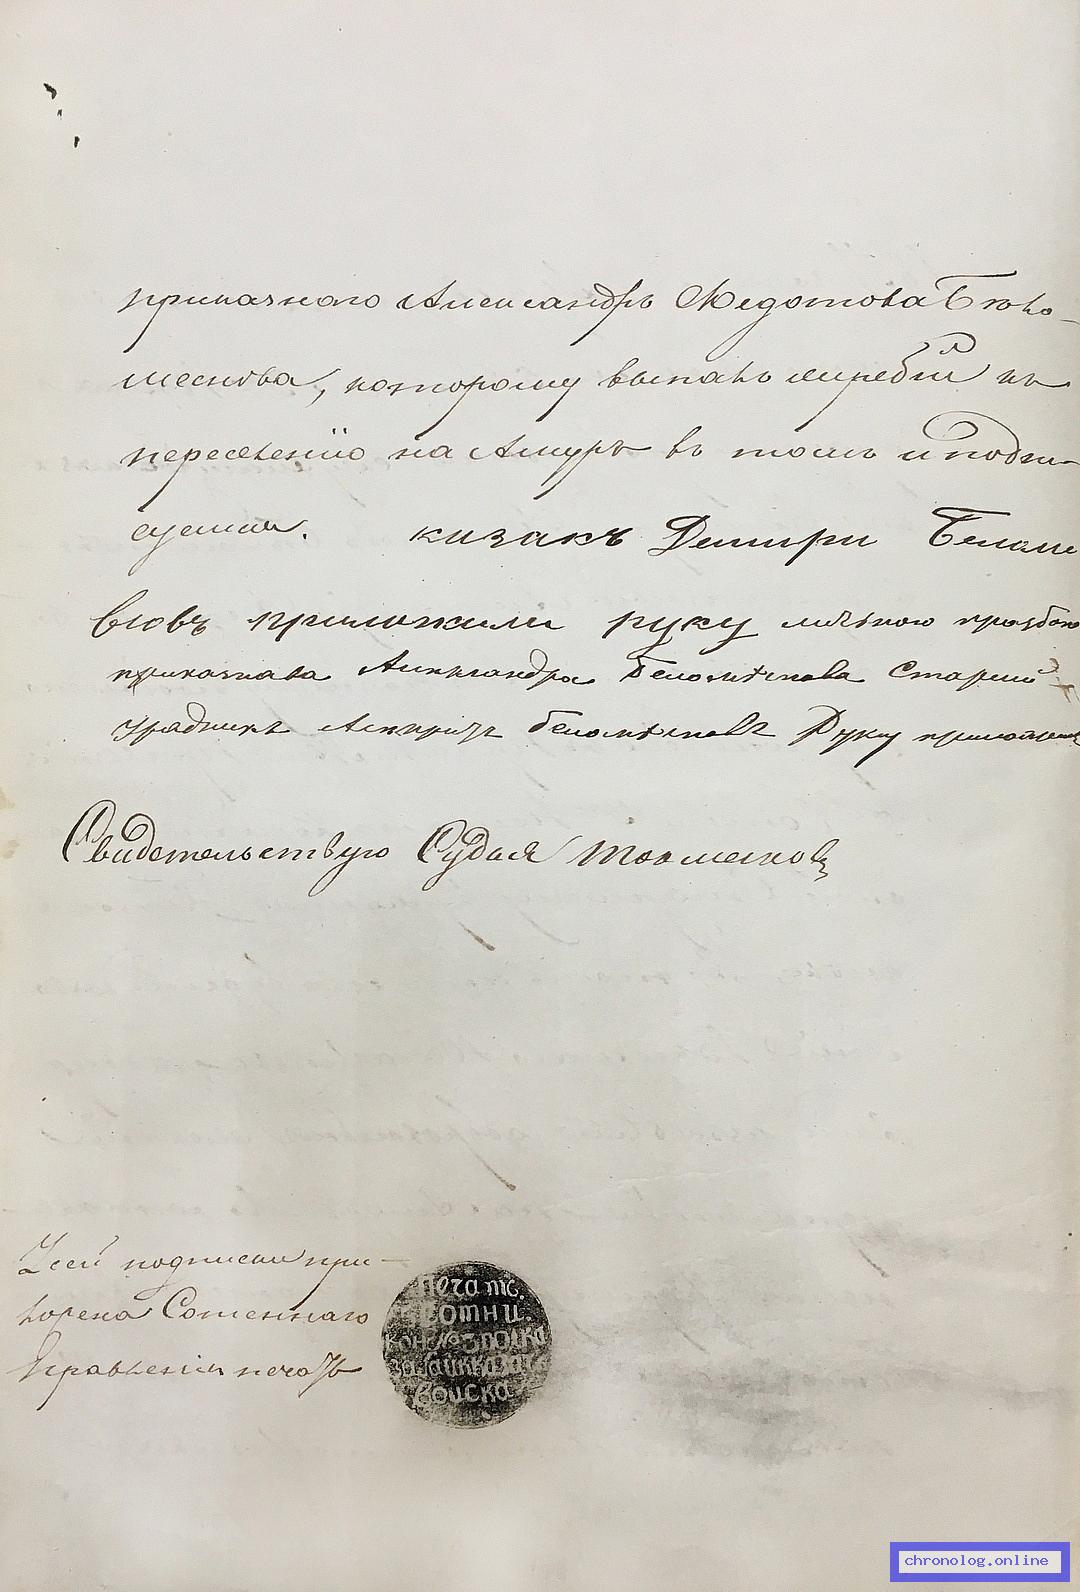 приказнаго Александръ Федотова Бѣло-
меснова, которому выпалъ жребій къ
переселенію на Амуръ въ томъ и подпи-
суемси. казакъ Димири Беломе
вювъ приложили руку личною прозбою
приказнава Александра Беломѣснова Старшій
Урядникъ беломѣсновъ Руку приложилъ
Свидетельствую Судья Токмаковъ
У сей подписки при-
ложена Сотеннаго
Правленія печать
Печат.
Сотни.
кон. №3 полка
забайк казач
воиска
chronolog.online